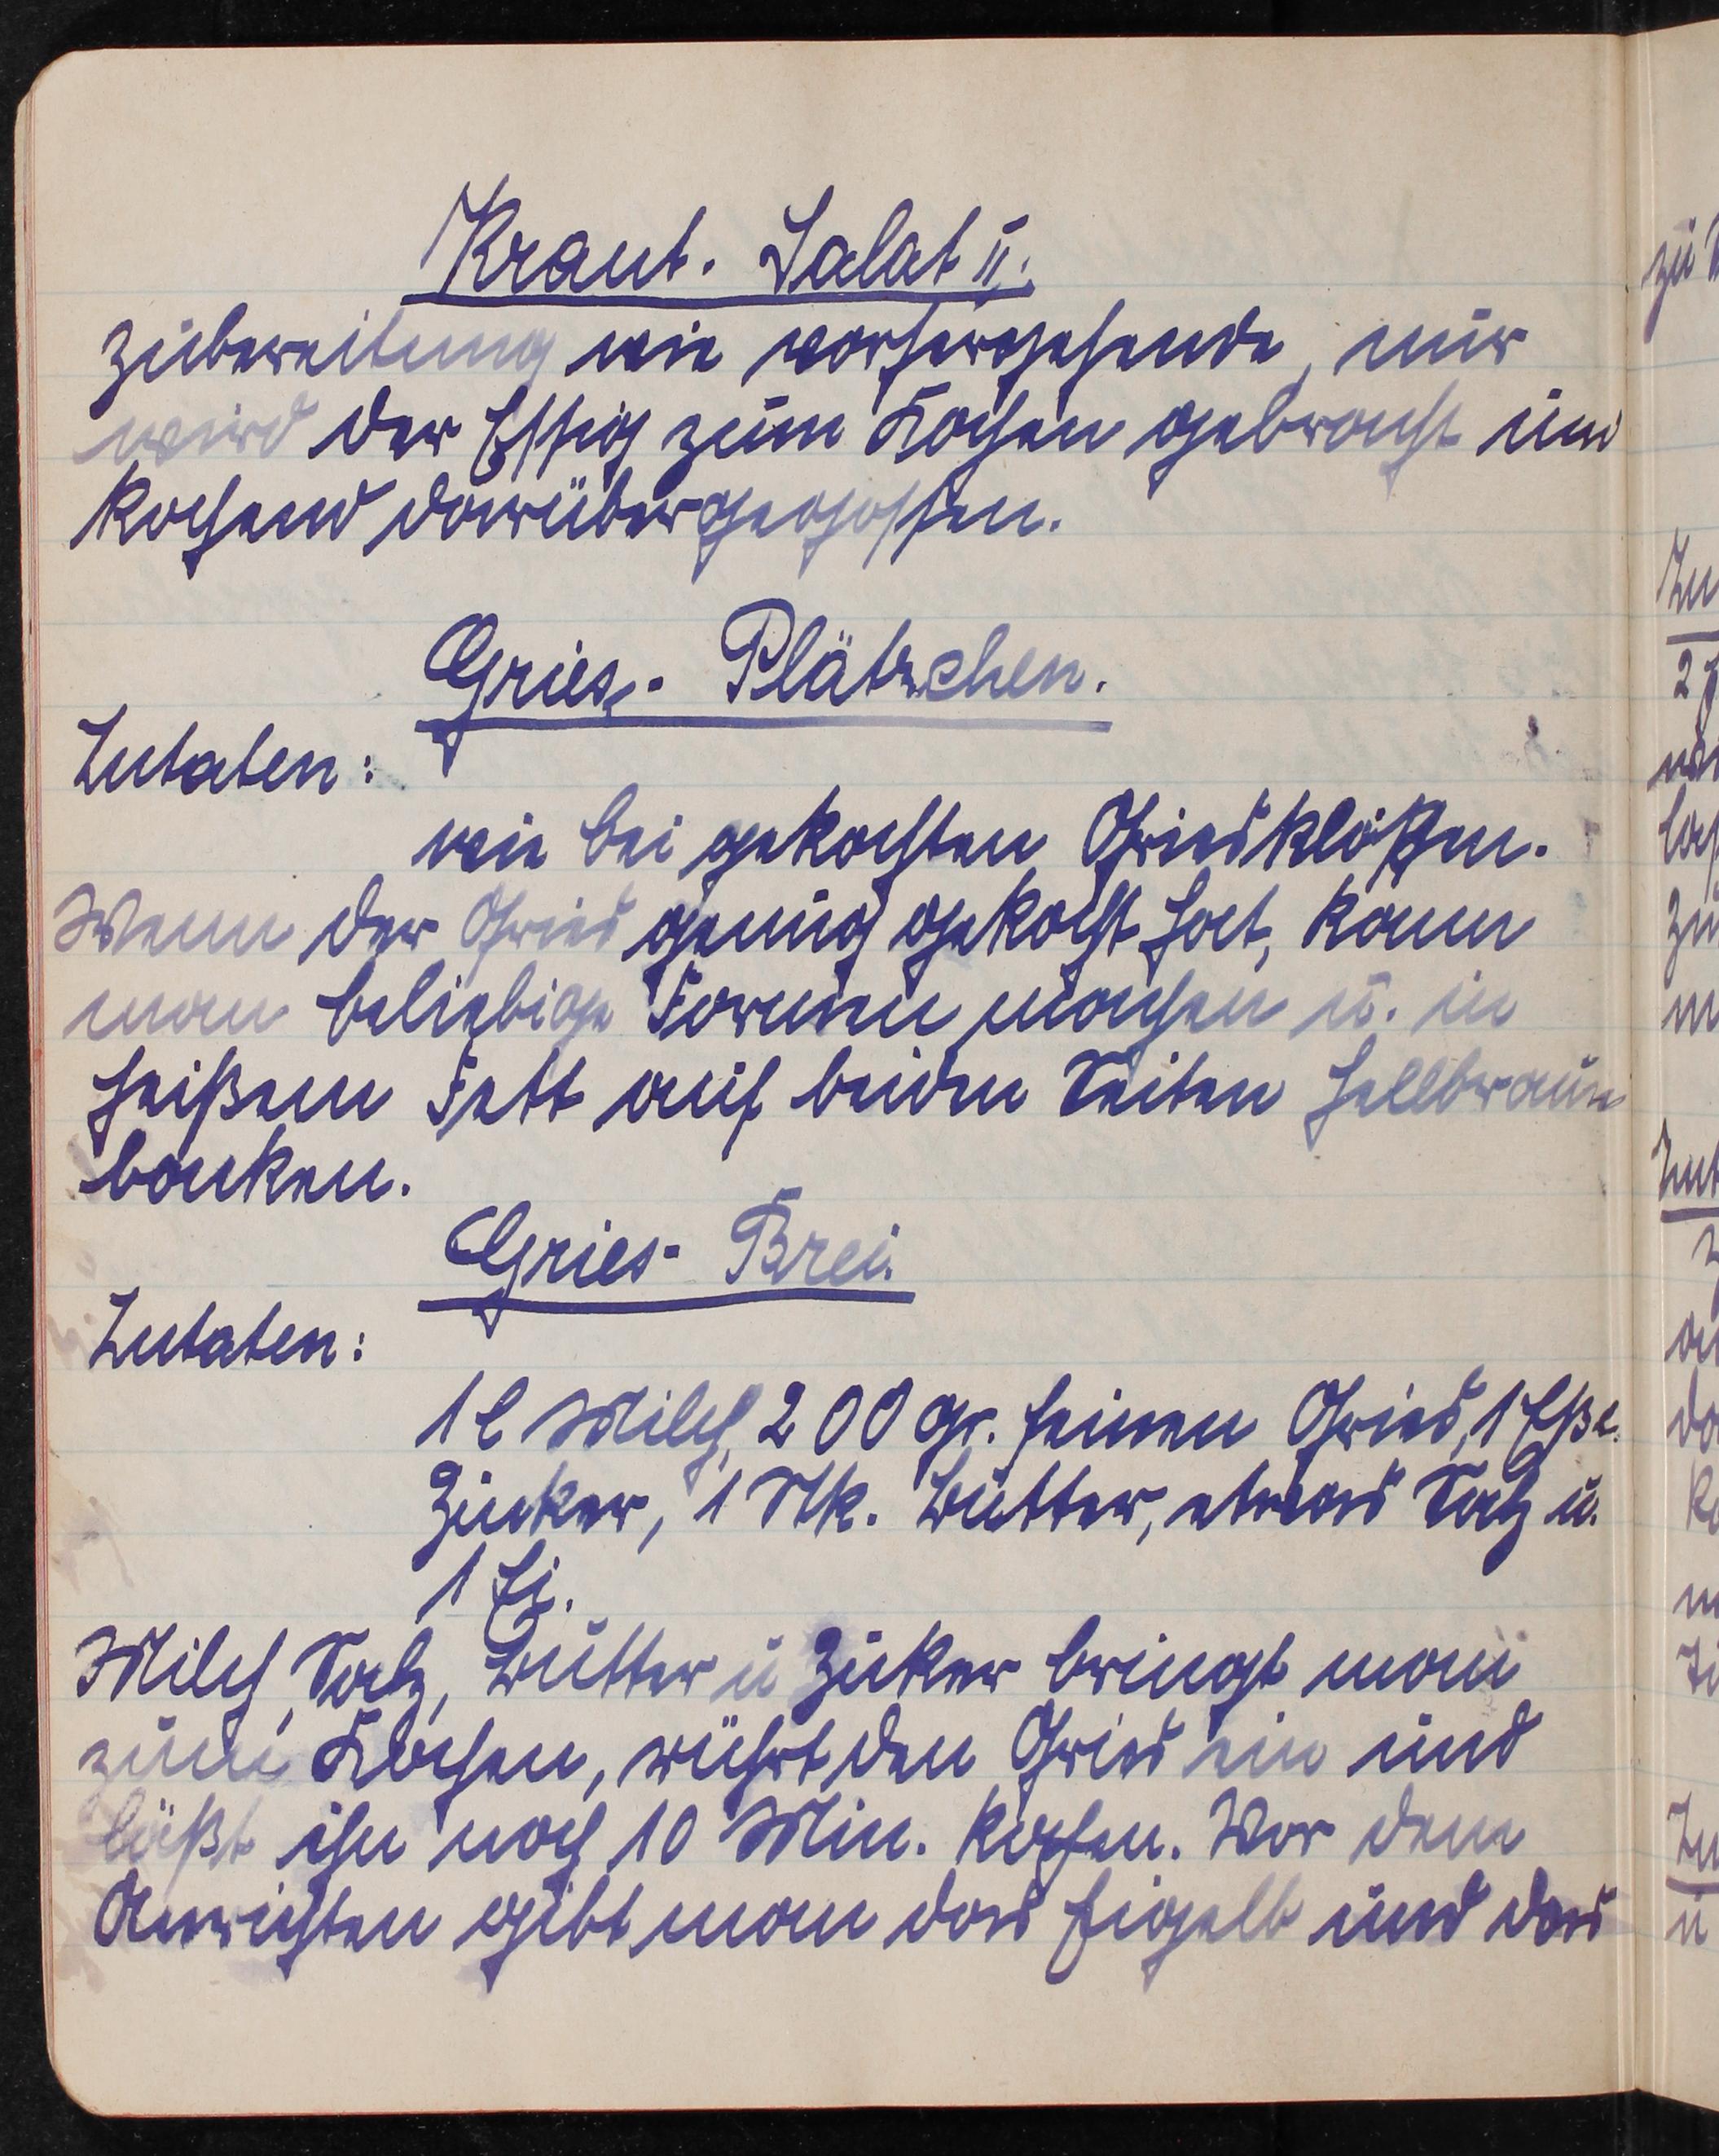 Kraut. Salat II.
Zubereitung wie vorhergehende, nur
wird der Essig zum Kochen gebracht und
kochend darübergegossen.
Gries-Plätzchen.
Zutaten:
wie bei gekochten Griesklößen.
Wenn der Gries genug gekocht hat, kann
man beliebige Formen machen u. in
heißem Fett auf beiden Seiten hellbraun
backen.
Gries-Brei.
Zutaten:
1 l Milch, 200 gr. feinen Gries, 1 Eßl.
Zucker, 1 Stk. Butter, etwas Salz u.
1 Ei.
Milch, Salz, Butter u Zuker bringt man
zum Kochen, rührt den Gries ein und
läßt ihn noch 10 Min. kochen. Vor dem
Anrichten gibt man das Eigelb und das